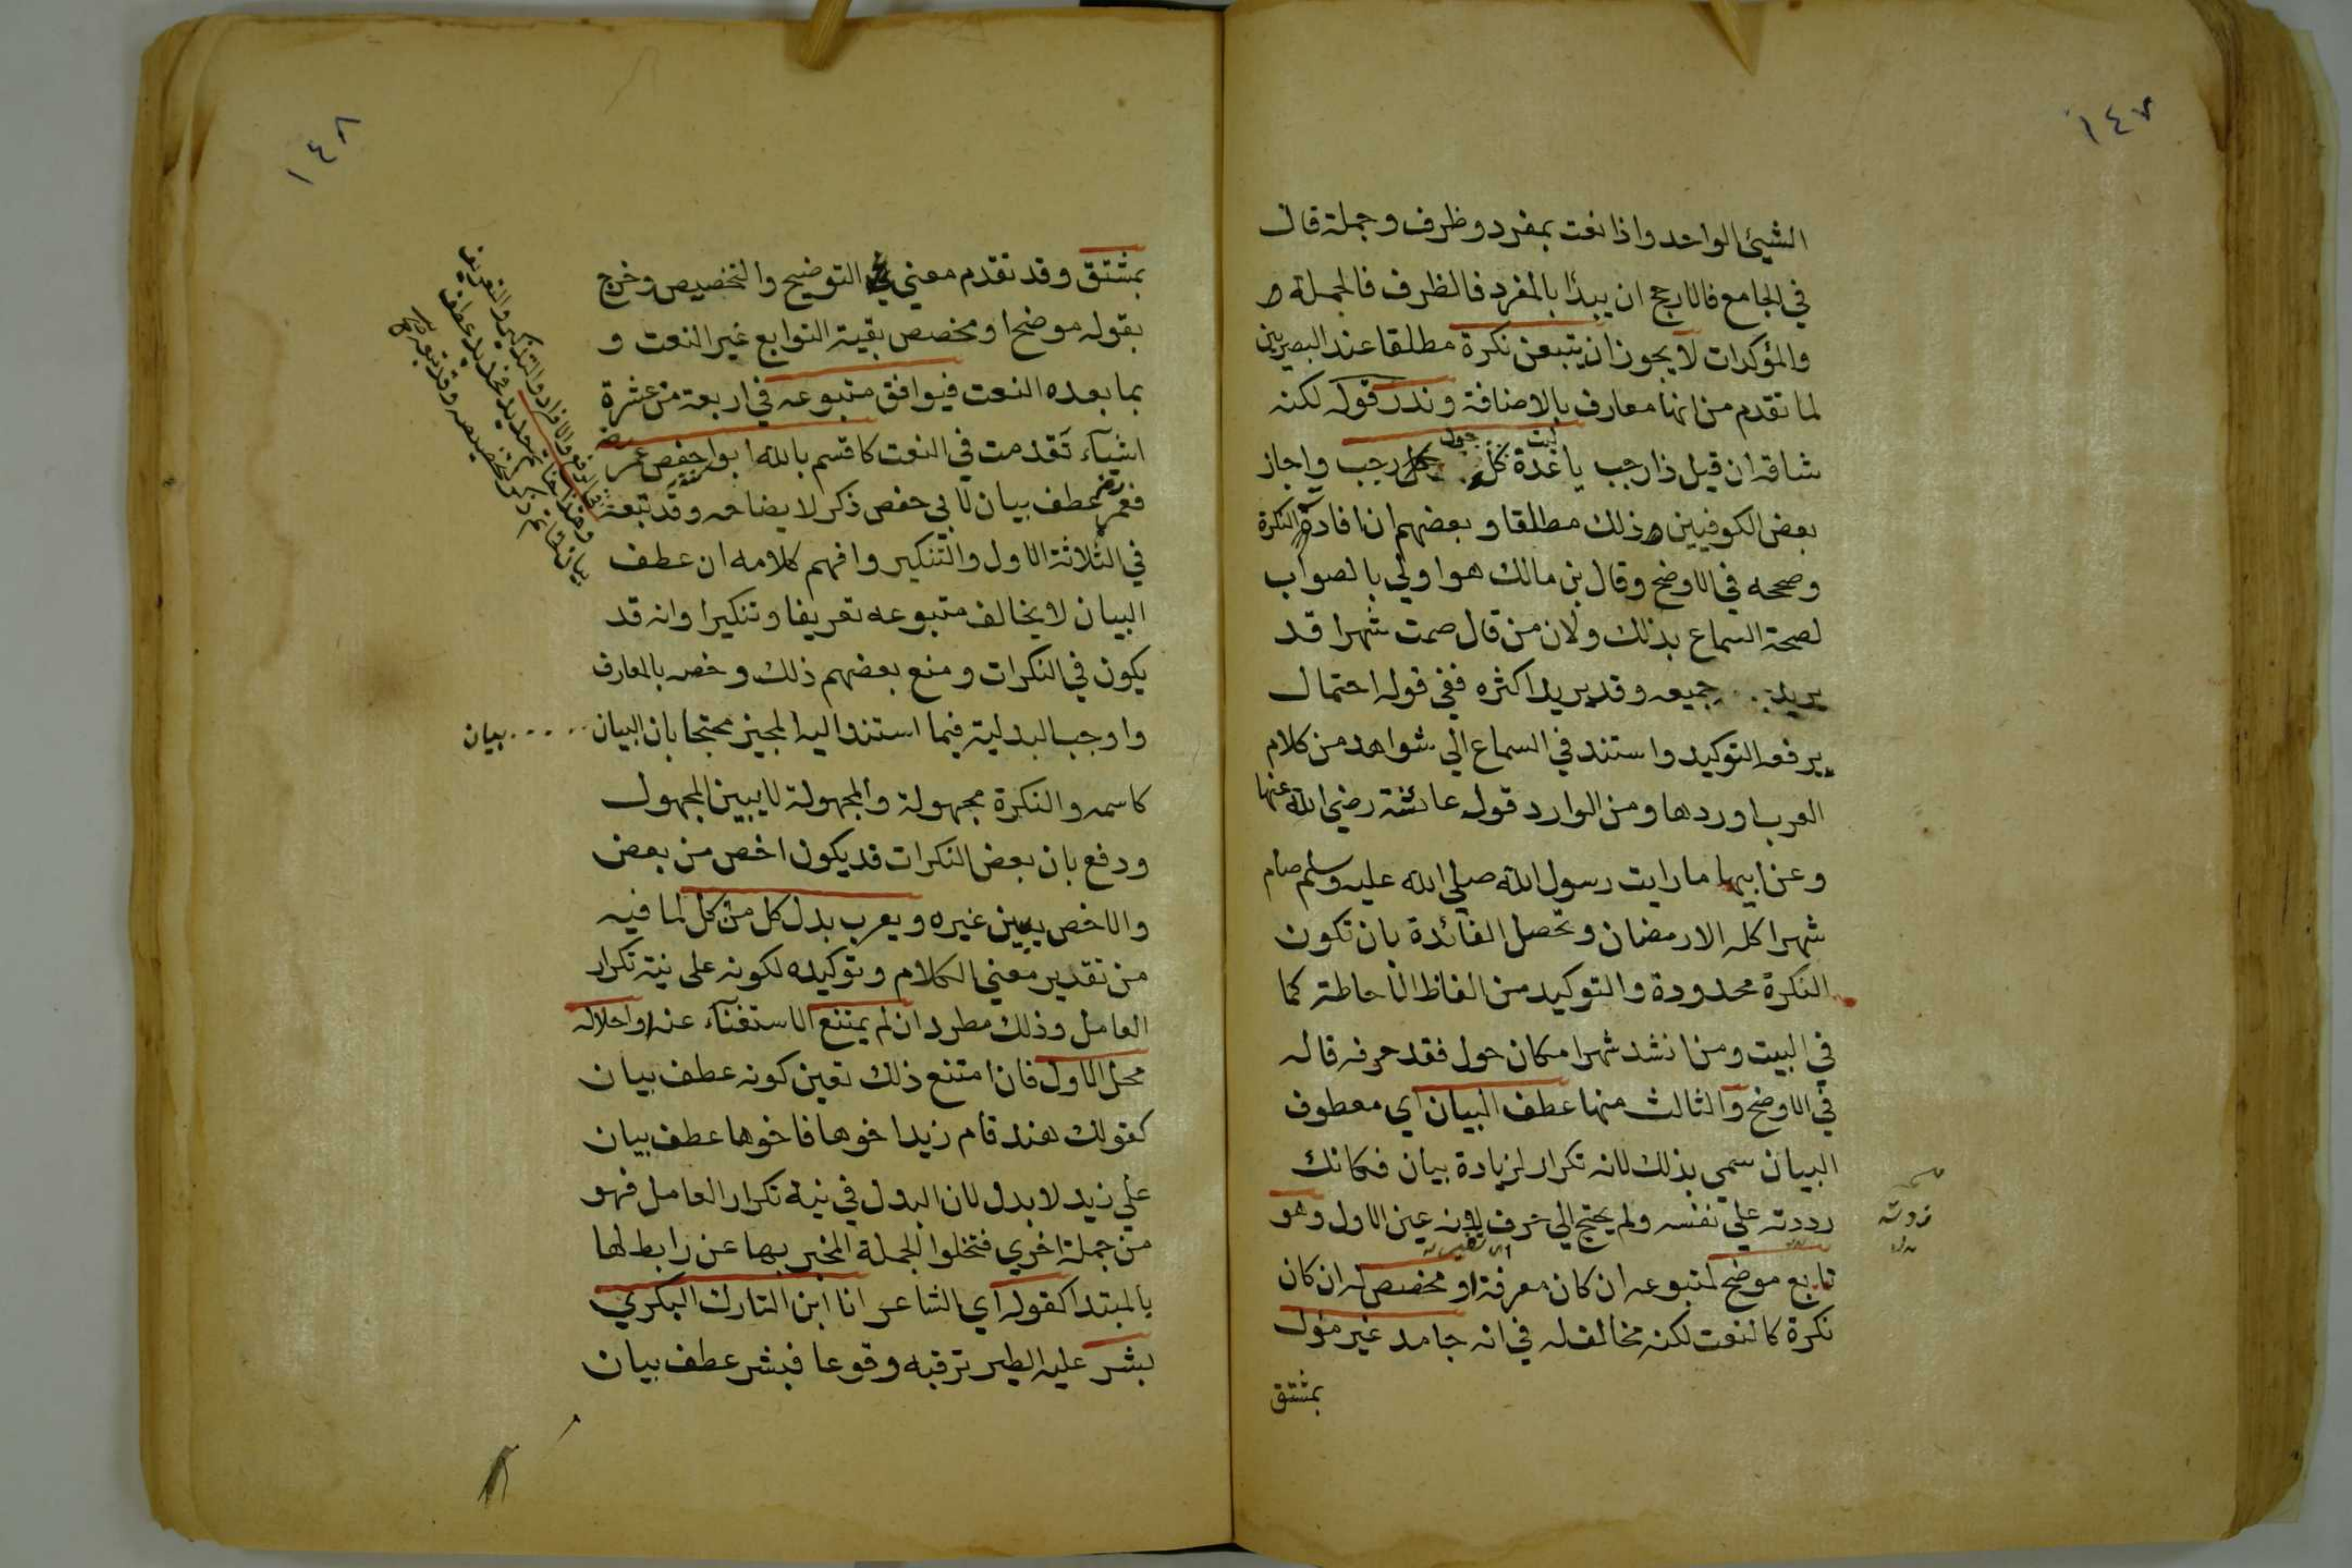 ١٤٧
الشيئ الواحد واذا نعت بمفرد وظرف وجملة قال
في الجامع فالارجح ان يبدا بالمفرد فالظرف فالجملة
والمؤكدات لا يجوز ان يتبعن نكرة مطلقا عند البصريين
لما تقدم من انها معارف بالاضافة وندر قوله لكنه
شاقه ان قيل ذا رجب يا عدة كل رجب واجاز
ليت حول
بعض الكوفيين ذلك مطلقا وبعضهم ان افادة النكرة
وصححه في الاوضح وقال بن مالك هو اولي بالصواب
لصحة السماع بذلك ولان من قال صمت شهرا قد
يريد جميعه وقد يريد اكثره ففي قوله احتمال
يرفعه التوكيد واستند في السماع الي شواهد من كلام
العرب اوردها ومن الوارد قول عائشة رضي الله عنها
وعن ابيها ما رايت رسول الله صلي الله عليه وسلم صام
شهرا كله الا رمضان وتحصل الفائدة بان تكون
النكرة محدودة والتوكيد من الفاظ الاحاطة كما
في البيت ومن انشد شهرا مكان حول فقد حرفه قاله
في الاوضح والثالث منها عطف البيان اي معطوف
البيان سمي بذلك لانه تكرار لزيادة بيان فكانك
رددته علي نفسه ولم يحتج الي حرف لانه عين الاول وهو
تابع موضح لمتبوعه ان كان معرفة او مخصص له ان كان
نكرة كالنعت لكنه مخالف له في انه جامد غير مؤل
بمشتق
١٤٨
بمشتق وقد تقدم معني التوضيح والتخصيص وخرج
بقوله موضح او مخصص بقية التوابع غير النعت و
بما بعده النعت فيوافق متبوعه في اربعة من عشرة
اشيآء تقدمت في النعت كاقسم بالله ابو حفص عمر
فعمر عطف بيان لابي حفص ذكر لايضاحه وقد تبعه
في الثلاثة الاول والتنكير وافهم كلامه ان عطف
البيان لا يخالف متبوعه تعريفا وتنكيرا وانه قد
يكون في النكرات ومنع بعضهم ذلك وخصه بالمعارف
واوجب البدلية فيما استند اليه المجيز محتجا بان البيان بيان
كاسمه والنكرة مجهولة والمجهولة لا يبين المجهول
ودفع بان بعض النكرات قد يكون اخص من بعض
والاخص يبين غيره ويعرب بدل كل من كل لما فيه
من تقدير معني الكلام وتوكيده لكونه على نية تكرار
العامل وذلك مطرد ان لم يمتنع الاستغنآء عنه او احلاله
محل الاول فان امتنع ذلك تعين كونه عطف بيان
كقولك هند قام زيد اخوها فاخوها عطف بيان
علي زيد لا بدل لان البدل في نية تكرار العامل فهو
من جملة اخري فتخلوا الجملة المخبر بها عن رابط لها
بالمبتدا كقوله اي الشاعر انا ابن التارك البكري
بشر عليه الطير ترقبه وقوعا فبشر عطف بيان